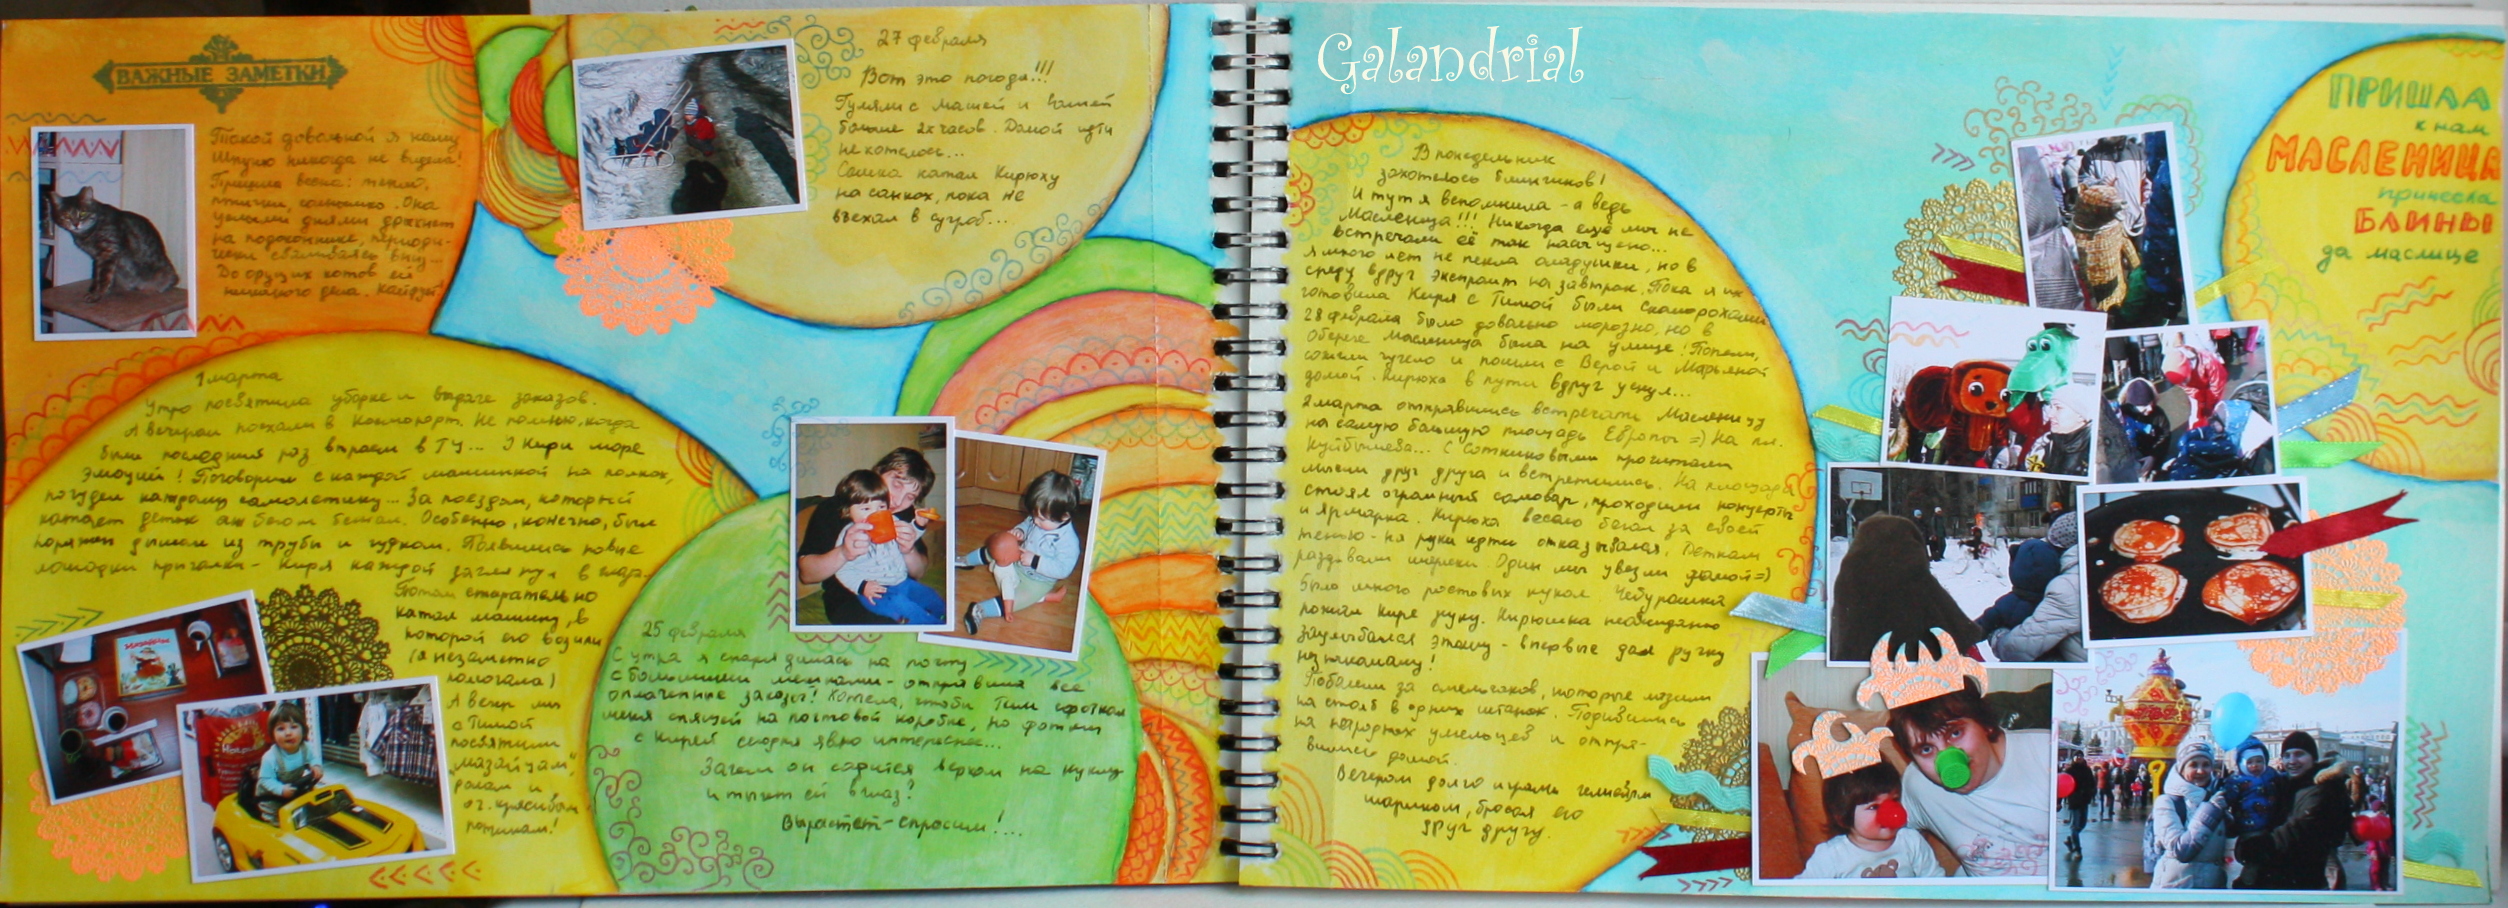 ВАЖНЫЕ ЗАМЕТКИ
Такой довольной я нашу
никогда не видела!
Пришла весна: тепло,
птички, солнышко. Она
целыми днями дрыхнет
на подоконнике, периоди-
чески сваливаясь вниз...
До других котов ей
никакого дела.
27 февраля
Вот это погода!!!
Гуляли с Машей и
больше 2х часов. Домой идти
не хотелось...
Сашка катал Кирюху
на санках, пока не
въехал в сугроб...
1 марта
Утро посвятила уборке и выдаче заказов.
А вечером поехали в Не помню, когда
были последний раз втроем в ТЦ... У Кири море
эмоций! Поговорил с каждой машинкой на полках,
погудел каждому самолетику... За поездом, который
катает деток аж бегом бежал. Особенно, конечно, был
поражен дымом из трубы и гудком. Появились новые
лошадки прыгалки - Киря каждой заглянул в глаза.
Потом старательно
катал машину, в
которой его возили
(я незаметно
помогала)
А вечер мы
с Тимой
посвятили
"мазайцам",
ролам и
оч. красивым
25 февраля
С утра я снарядилась на почту
с большими мешками - отправила все
оплаченные заказы! Хотела, чтобы Тим сфоткал
меня спящей на почтовой коробке, но фотки
с Кирей скорее явно интереснее...
Зачем он садится верхом на куклу
и тычет ей в глаз?
Вырастет - спросим!...
Galandrial
В понедельник
захотелось блинчиков!
И тут я вспомнила - а ведь
Масленица!!! Никогда ещё мы не
встречали её так насыщено...
Я много лет не пекла оладушки, но в
среду вдруг экспромт на завтрак. Пока я их
готовила Киря с Тимой были Скоморохами.
28 февраля было довольно морозно, но в
Обереге Масленица была на улице! Попели,
сожгли чучело и пошли с Верой и Марьяной
домой. Кирюха в пути вдруг уснул...
2 марта отправились встречать Масленицу
на самую большую площадь Европы =) На пл.
Куйбышева... С Сотниковыми прочитали
мысли друг друга и встретились. На площади
стоял огромный самовар, проходили концерты
и Ярмарка. Кирюха весело бегал за своей
тенью - на руки идти отказывался. Деткам
раздавали шарики. Один мы увезли домой =)
Было много ростовых кукол. Чебурашка
пожал Кире руку. Кирюшка неожиданно
заулыбался этому - впервые дал ручку
незнакомому!
Поболели за смельчаков, которые лазили
на столб в одних штанах. Подивились
на народных умельцев и отпра-
вились домой.
Вечером долго играли гелиевым
шариком, бросая его
друг другу.
ПРИШЛА
к нам
МАСЛЕНИЦА
принесла
БЛИНЫ
да маслице